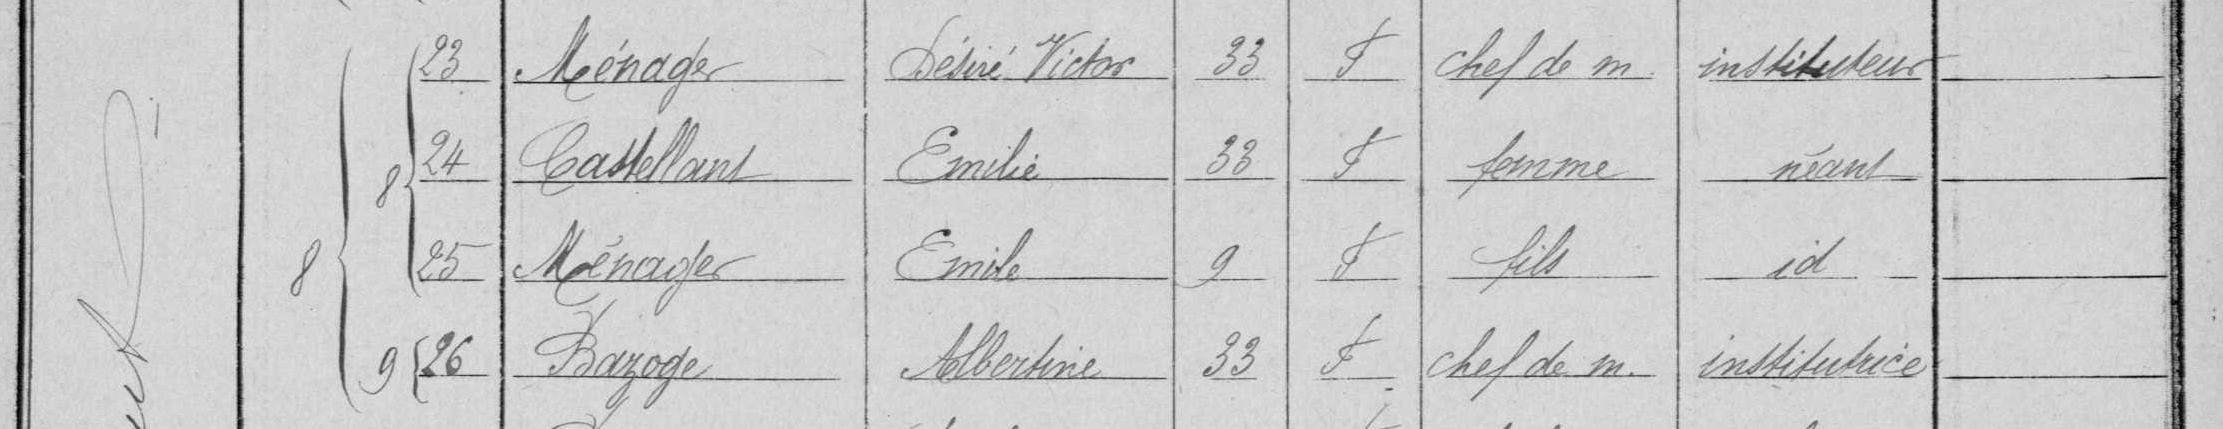 23 Ménager Désiré Victor 33 F chef de m. instituteur
8 24 Castellant Emilie 33 F femme néant
8 25 Ménager Emile 9 F fils id
9 26 Bazoge Albertine 33 F chef de m. institutrice